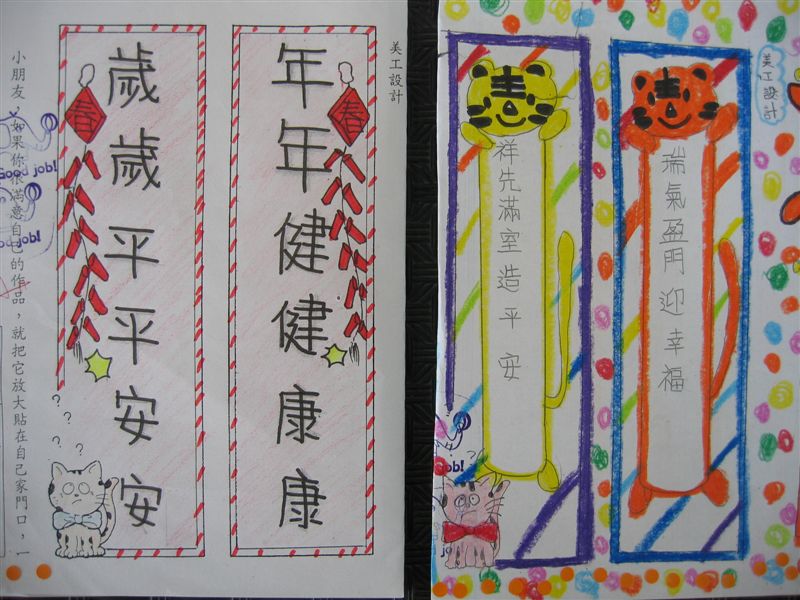 美工設計
年年健健康康
春
歲歲平平安安
春
小朋友，如果你很滿意自己的作品，就把它放大貼在自己家門口，一
Good job!
美工設計
瑞氣盈門迎幸福
祥先滿室造平安
job!